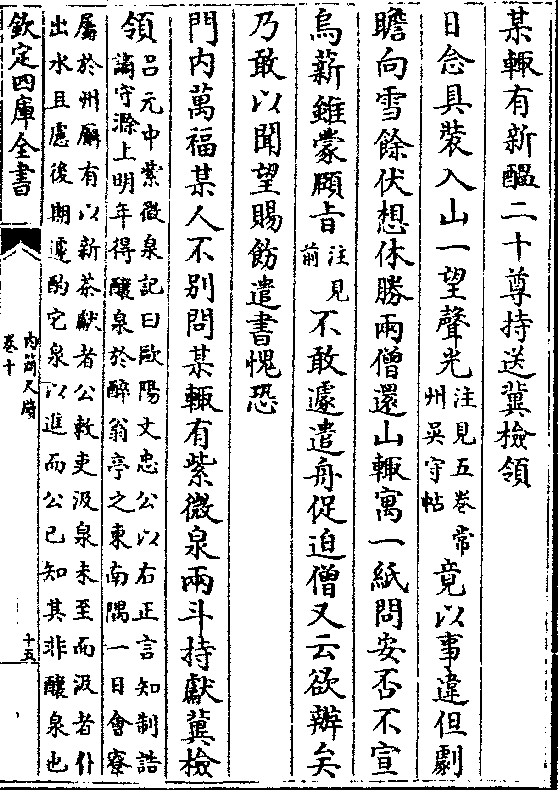 某輙有新醖二十尊持送冀檢領
日念具裝入山一望聲光注見五巻常州吳守帖竟以事違但劇
瞻向雪餘伏想体勝兩僧還山輙寓一紙問安否不宣
烏薪雖蒙願㫖注見前不敢遽遣舟促迫僧又云欲辦矣
乃敢以聞望賜飭遣書愧恐
門内萬福某人不别問某輙有紫微泉兩斗持獻冀檢
領吕元中紫微泉記曰歐陽文忠公以右正言知制誥
謫守滁上明年得釀泉於醉翁亭之東南隅一日㑹寮
屬於州廨有以新茶獻者公敕吏汲泉未至而汲者仆
出水且慮後期遽酌它泉以進而公已知其非釀泉也
欽定四庫全書
内簡尺牘
卷十
十五